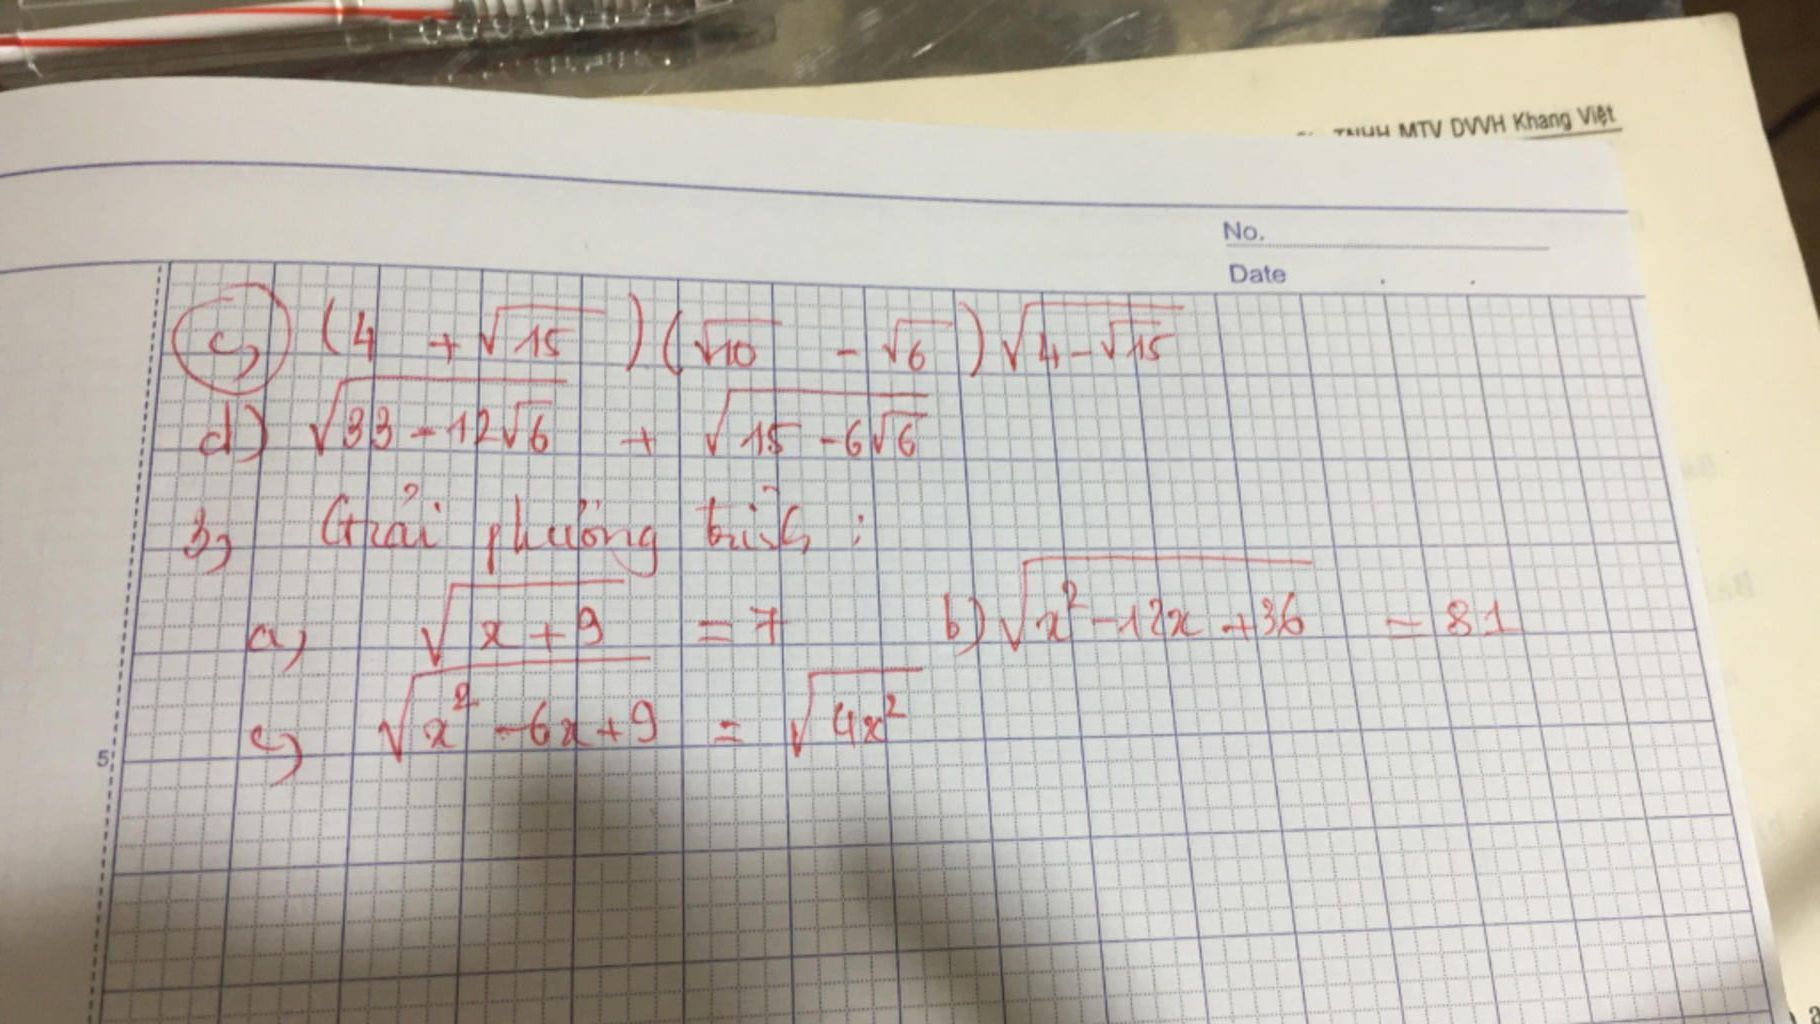 TNHH MTV DVVH Khang Việt
No.
Date
c) (4 + √15)(√10 - √6)√(4-√15)
d) √(33-12√6) + √(15-6√6)
3) Giải phương trình :
a) √(x+9) = 7 b) √(x²-12x+36) = 81
c) √(x²-6x+9) = √(4x²)
5